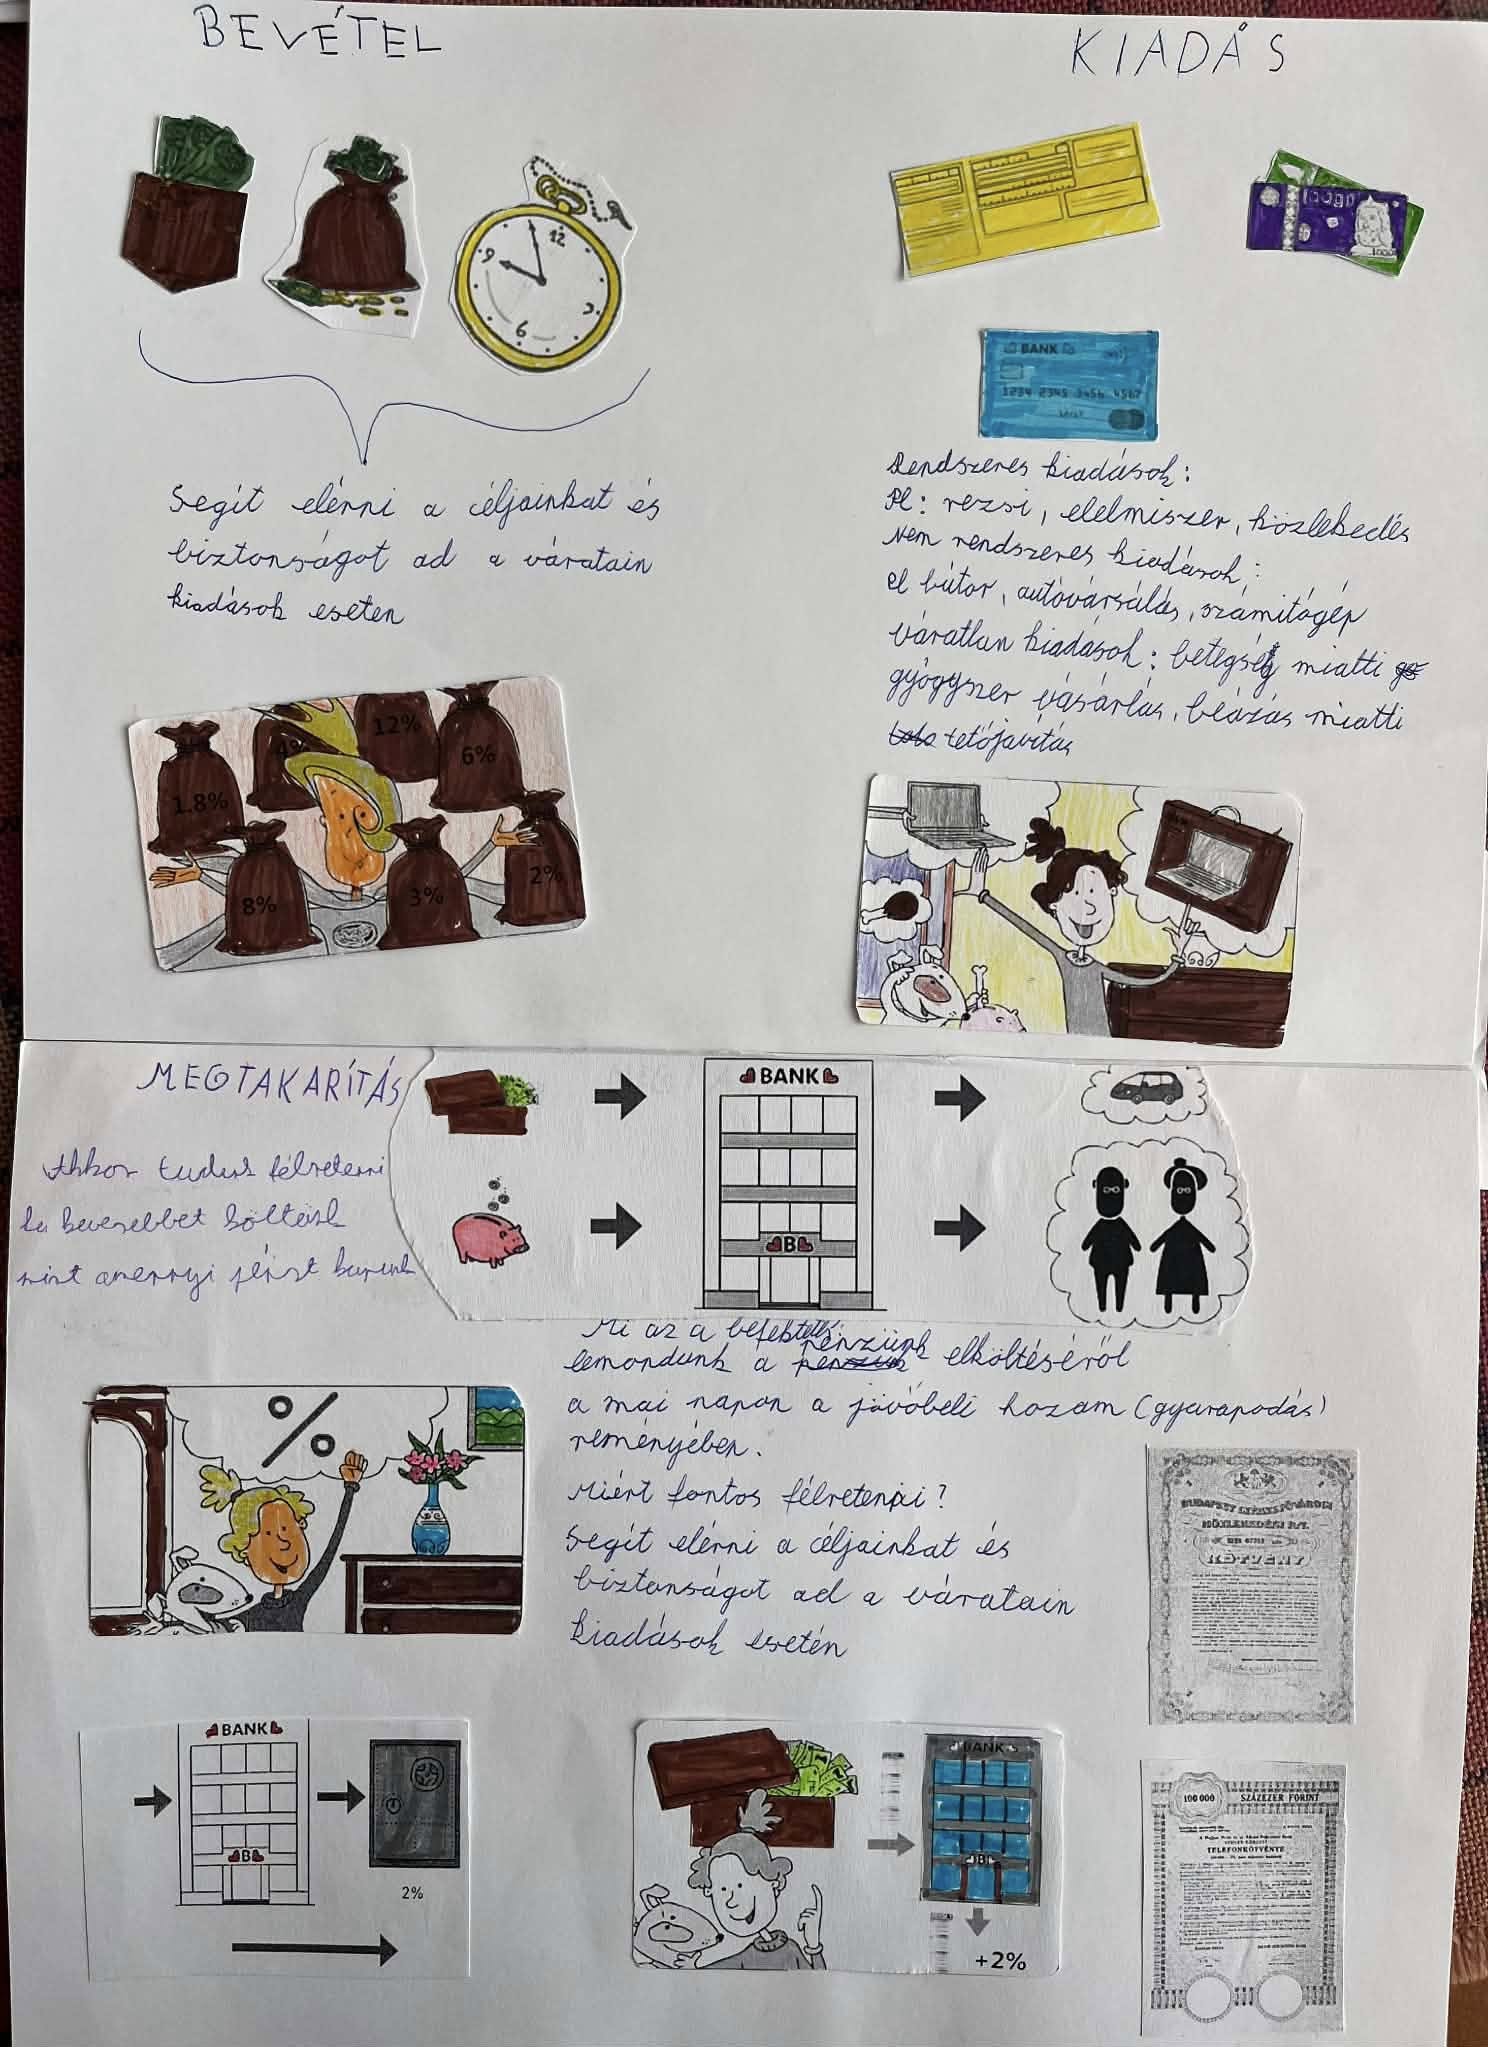 BEVÉTEL
KIADÁS
12
9
6
1000
1000
BANK
1234 2345 3456 4567
Segít elérni a céljainkat és
biztonságot ad a váratain
kiadások eseten
Rendszeres kiadások:
Pl: rezsi, elelmiszer, közlekedés
Nem rendszeres kiadások:
pl bútor, autóvársálás, számitógép
váratlan kiadások: betegség miatti
gyógyszer vásárlás, beázás miatti
tetőjavítás
1.8%
4%
12%
6%
8%
3%
2%
MEGTAKARÍTÁS
Akkor tudunk félretenni
ha kevesebbet költünk
mint amennyi pénzt kapunk
BANK
B
Mi az a befektetés:
lemondunk a pénzünk elköltéséről
a mai napon a jövőbeli hozam (gyarapodás)
reményében.
Miért fontos félretenni?
Segít elérni a céljainkat és
biztonságot ad a váratain
kiadások esetén
%
BUDAPEST SZÉKESFŐVÁROSI
KÖZLEKEDÉSI R.T.
KÖTVÉNY
BANK
B
2%
BANK
B
+2%
100 000 SZÁZEZER FORINT
TELEFONKÖTVÉNYE